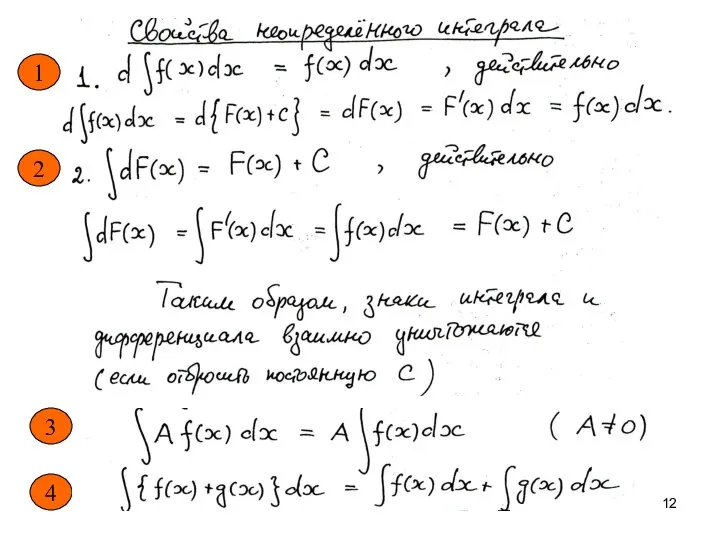 Свойства неопределённого интеграла
1 1. d∫f(x)dx = f(x)dx , действительно
d∫f(x)dx = d{F(x)+c} = dF(x) = F'(x)dx = f(x)dx.
2 2. ∫dF(x) = F(x) + C , действительно
∫dF(x) = ∫F'(x)dx = ∫f(x)dx = F(x) + C
Таким образом, знаки интеграла и
дифференциала взаимно уничтожаются
(если отбросить постоянную C)
3 ∫A f(x) dx = A ∫f(x)dx (A≠0)
4 ∫{f(x)+g(x)}dx = ∫f(x)dx + ∫g(x)dx
12